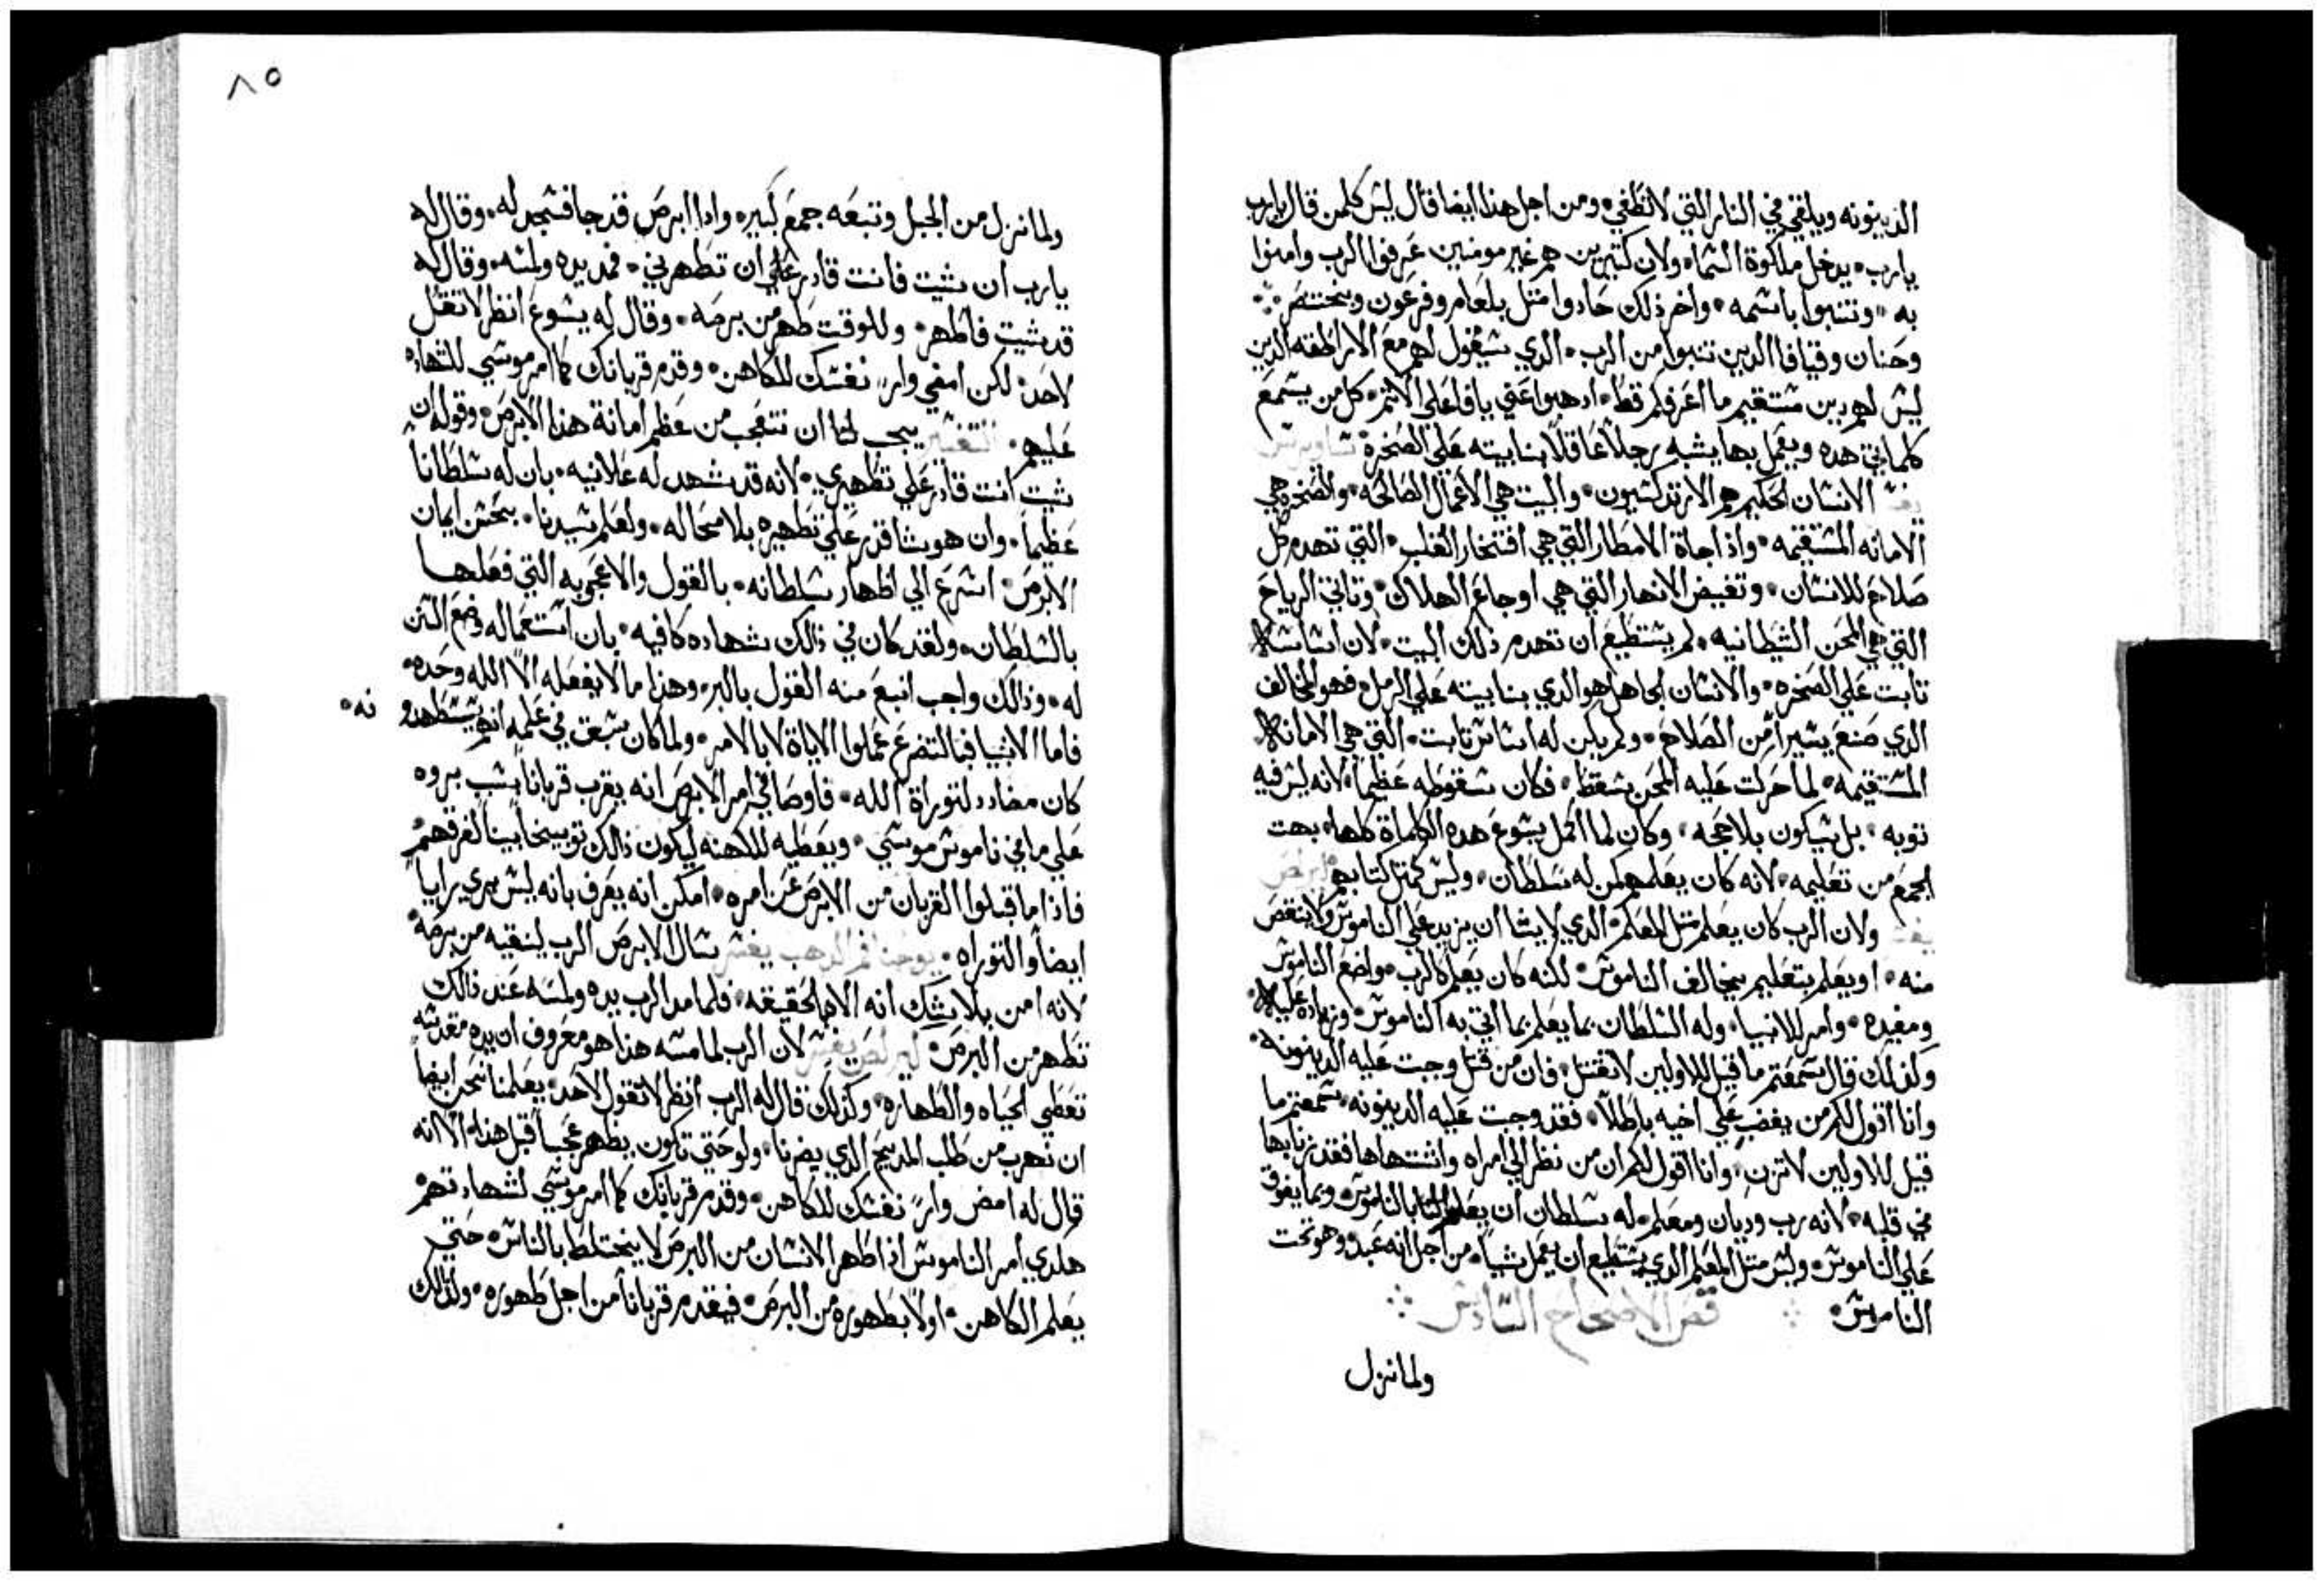 الدينونه ويلقي في النار التي لا تطفي ومن اجل هذا ايضا قال ليش كلمن قال يارب
يارب يدخل ملكوة السما ولان كتيرين هم غير مومنين عرفوا الرب وامنوا
به وتنبوا باسمه واخر ذلك حادوا متل بلعام وفرعون وبختنصر
وحنان وقيافا الدين تنبوا من الرب الدي سيقول لهم مع الاراطقه الدين
ليش لهم دين مستقيم ما اعرفكم قط ادهبوا عني يا فاعلي الاتم كل من يسمع
كلماتي هده ويعمل بها يشبه رجلا عاقلا بنا بيته علي الصخرة ساويرس
الانسان الحكيم هم الارتدكسيون والبيت هي الاعمال الصالحه والصخره هي
الامانه المستقيمه واذا جاة الامطار التي هي افتخار القلب التي تهدم كل
صلاح للانسان وتفيض الانهار التي هي اوجاع الهلاك وتاتي الرياح
التي هي المحن الشيطانيه لم يستطيع ان تهدم ذلك البيت لان اساسه
تابت علي الصخره والانسان الجاهل هو الدي بنا بيته علي الرمل فهو المخالف
الدي صنع يسيرا من الصلاح ولم يكن له اساس تابت التي هي الامانه
المستقيمه لما حركت عليه المحن سقط فكان سقوطه عظيما لانه ليس فيه
توبه بل سيكون بلا حجه وكان لما اكمل يسوع هده الكلماة كلها بهت
الجمع من تعليمه لانه كان يعلمهم كمن له سلطان وليس كمتل كتابهم
ولان الرب كان يعلم متل المعلم الدي لا يشا ان يزيد علي الناموس ولا ينقص
منه او يعلم بتعليم يخالف الناموس لكنه كان يعلم كالرب واضع الناموس
ومفيده وامر للانبيا وله السلطان بما يعلم بما اتي به الناموس وزياده عليه
ولذلك قال سمعتم ما قيل للاولين لا تقتل فان من قتل وجبت عليه الدينونه
وانا اقول لكم من يغضب علي اخيه باطلا فقد وجبت عليه الدينونه سمعتم ما
قيل للاولين لا تزن وانا اقول لكم ان من نظر الي امراه واشتهاها فقد زنا بها
في قلبه لانه رب وديان ومعلم له سلطان ان يعلم بالناموس وبما يفوق
علي الناموس وليس متل المعلم الدي يستطيع ان يعمل شيا من اجل انه عبد وهو تحت
الناموس فص الاصحاح السادس
ولما نزل
٨٥
ولما نزل من الجبل وتبعه جمع كبير واذا ابرص قد جا فسجد له وقال له
يارب ان شيت فانت قادر علي ان تطهرني فمد يده ولمسه وقال له
قد شيت فاطهر وللوقت طهر من برصه وقال له يسوع انظر لا تقل
لاحد لكن امضي وار نفسك للكاهن وقدم قربانك كما امر موسي للشهاده
عليهم التفسير يجب لنا ان نتعجب من عظم امانة هذا الابرص وقوله ان
شيت انت قادر علي تطهيري لانه قد شهد له علانيه بان له سلطانا
عظيما وان هو شا قدر علي تطهيره بلا محاله ولعلم سيدنا بحسن ايمان
الابرص اسرع الي اظهار سلطانه بالقول والاعجوبه التي فعلها
بالسلطان ولقد كان في ذالك شهاده كافيه بان استعماله وضع
له وذالك واجب اتبع منه القول بالبر وهذا ما لا يفعله الا الله وحده
فاما الانبيا فبالتضرع عملوا الاياة لا بالامر ولما كان سبق في علمه انهم يستطهدو نه
كان مضادد لتوراة الله فاوصا في امر الابرص انه يقرب قربانا بسب بروه
علي ما في ناموس موسي ويعطيه للكهنه ليكون ذالك توبيخا بينا لفرقهم
فاذا ما قبلوا القربان من الابرص عن امره امكن انه يعرف بانه ليس بري برايا
ايضا والتوراه يوحنا فم الدهب يفسر سال الابرص الرب لينقيه من برصه
لانه امن بلا شك انه الاه بالحقيقه فلما مد الرب يده ولمسه عند ذالك
تطهر من البرص كيرلص يفسر لان الرب لما مسه هذا هو معروف ان يده مقدسه
تعطي الحياه والطهاره وكذلك قال له الرب انظر لا تقول لاحد يعلمنا نحن ايضا
ان نهرب من طلب المديح الدي يضرنا ولو حتي تكون يظهر عجبا قبل هذا الا انه
قال له امض وار نفسك للكاهن وقدم قربانك كما امر موسي لشهادتهم
هكدي امر الناموس اذا طهر الانسان من البرص لا يختلط بالناس حتي
يعلم الكاهن اولا بطهوره من البرص فيقدم قربانا من اجل طهوره ولذالك